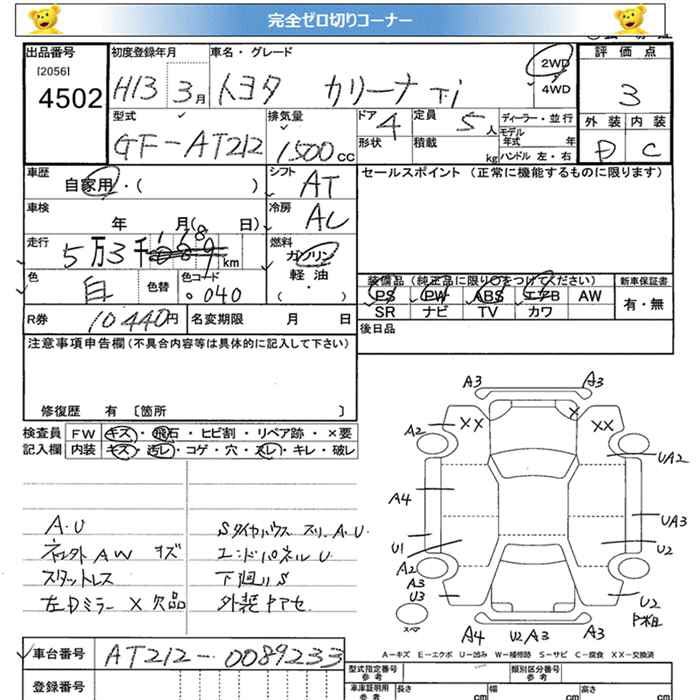 完全ゼロ切りコーナー
出品番号 初度登録年月 車名・グレード 2WD 評価点
[2056]
4502 H13 3月 トヨタ カリーナ Ti 4WD 3
型式 排気量 ドア 定員 ディーラー・並行 外装 内装
GF-AT212 1500cc 4 5人 モデル年式 年 D C
形状 積載 kg ハンドル 左・右
車歴 自家用・( ) シフト AT セールスポイント (正常に機能するものに限ります)
車検 年 月( 日) 冷房 AC
走行 5万3千 km 燃料 ガソリン
軽油
・
( )
色 白 色替 色コード 040 装備品(純正品に限り○をつけてください) 新車保証書
PS PW ABS エアB AW 有・無
SR ナビ TV カワ
R券 10440円 名変期限 月 日 後日品
注意事項申告欄(不具合内容等は具体的に記入して下さい)
修復歴 有 〔箇所 〕
検査員 FW キズ・飛石・ヒビ割・リペア跡・×要
記入欄 内装 キズ・汚レ・コゲ・穴・スレ・キレ・破レ
A3 A3
A2 XX X XX UA2
A4 UA3
U1 U2
A2
A3
U3
U2
スペア
A4 U2A3 A3
A.U
キズ
スタットレス
左Dミラー X 欠品
Sタイヤハウス A.U.
エンドパネル U
下廻りS
外装
A-キズ E-エクボ U-凹み W-補修跡 S-サビ C-腐食 XX-交換済
車台番号 AT212-0089233
登録番号
型式指定番号 参考 類別区分番号 参考
車庫証明用 参考 長さ cm 幅 cm 高さ cm